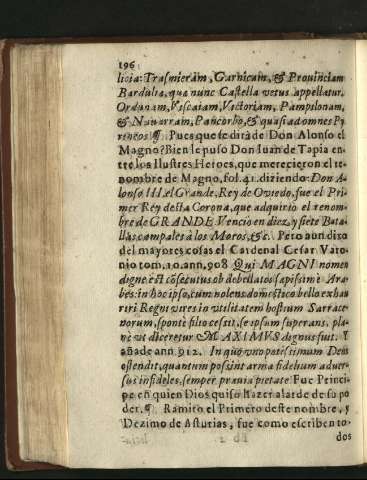 196
licia: Trasmieram, Garnicam, & Provinciam
Bardulia, quæ nunc Castella vetus appellatur,
Ordunam, Viscaiam, Victoriam, Pampilonam,
& Navarram, Pancorbo, & quasi ad omnes Py
reneos. ¶. Pues que se dirà de Don Alonso el
Magno? Bien le puso Don Iuan de Tapia en
tre los Ilustres Heroes, que merecieron el re-
nombre de Magno, fol. 41. diziendo: Don A-
lonso III. el Grande, Rey de Oviedo, fue el Pri
mer Rey desta Corona, que adquirio el renom-
bre de GRANDE. Vencio en diez y siete Bata-
llas campales à los Moros, &c. Pero aun dixo
del mayores cosas el Cardenal Cesar Varo-
nio tom. 10. ann. 908 Qui MAGNI nomen
digne est cõsecutus ob debellatos sæpissime Ara
bes: in hoc ipso, cum nolens domestico bello exhau
riri Regni vires in vtilitatem hostium Sarrace
norum, sponte filio cessit, se ipsum superans, pla-
ne vt diceretur MAXIMVS dignus fuit. Y
añade ann. 912. In quo vno potissimum Deus
ostendit, quantum possint arma fidelium adver-
sus infideles, semper prævia pietate. Fue Princi-
pe en quien Dios quiso hazer alarde de su po
der. ¶. Ramiro el Primero deste nombre, y
Dezimo de Asturias, fue como escriben to-
dos